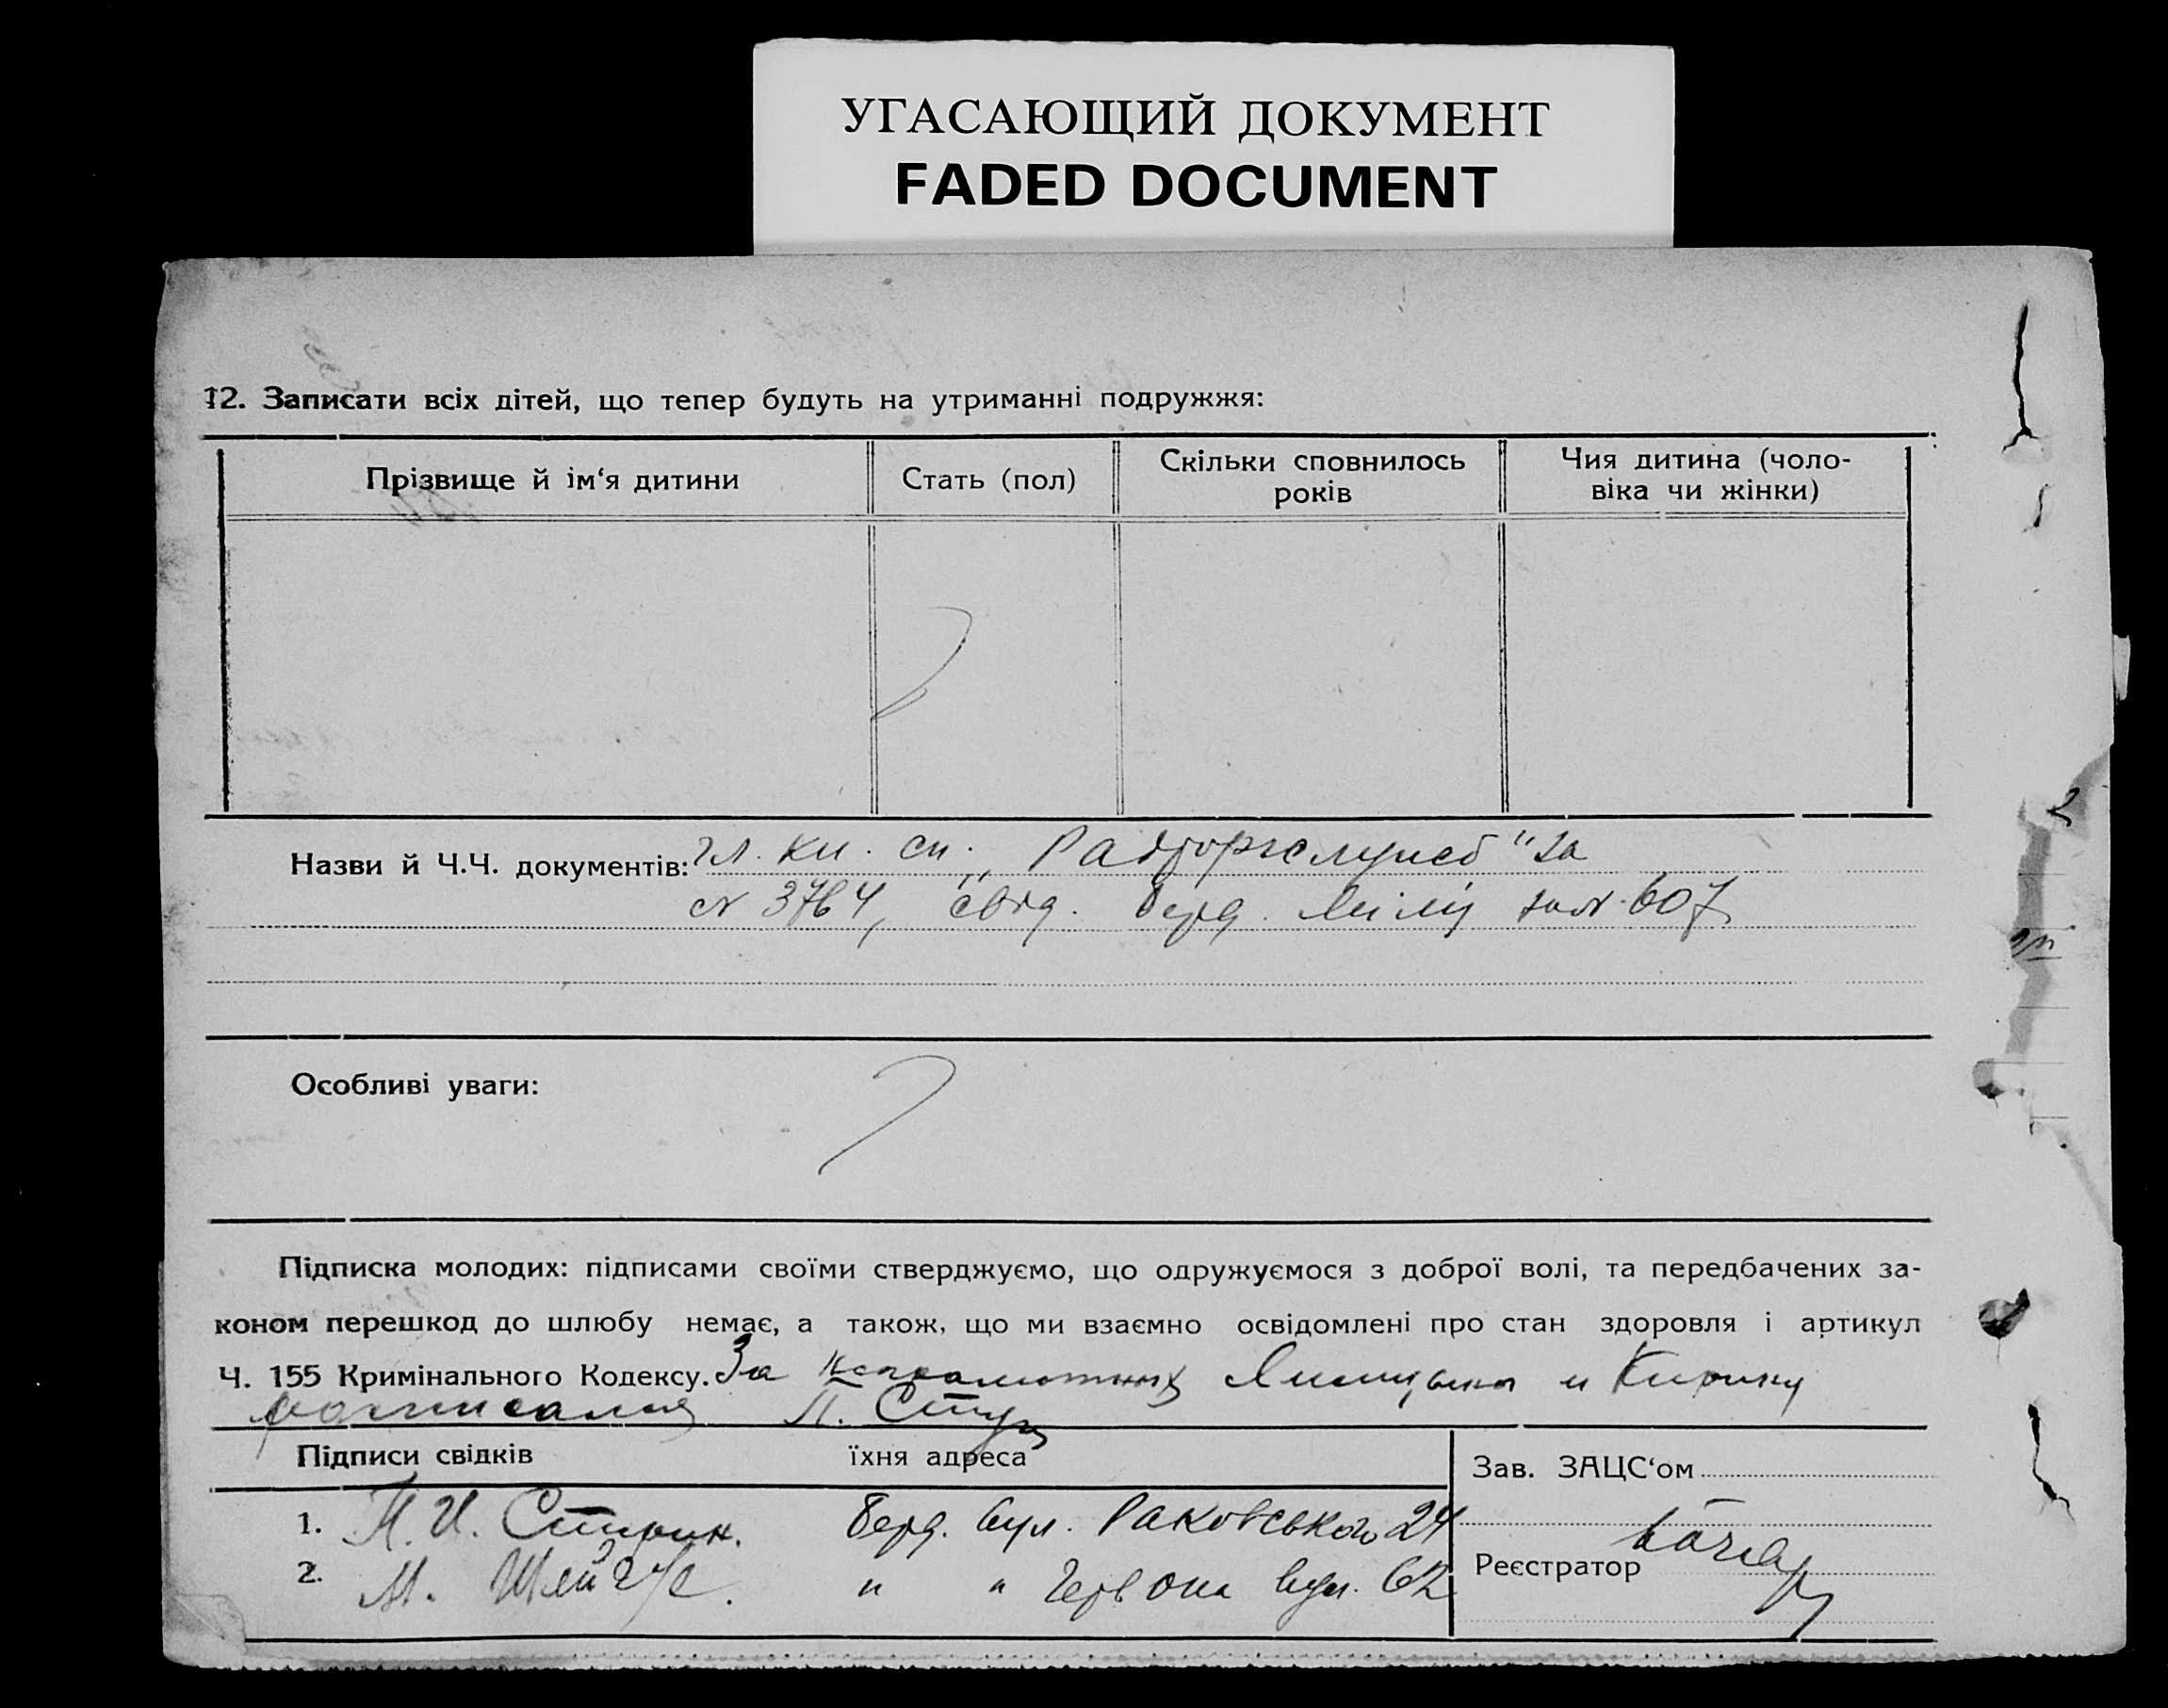 УГАСАЮЩИЙ ДОКУМЕНТ
FADED DOCUMENT
12. Записати всіх дітей, що тепер будуть на утриманні подружжя:
Прізвище й ім‘я дитини
Стать (пол)
Скільки сповнилось
років
Чия дитина (чоло-
віка чи жінки)
Назви й Ч.Ч. документів: чл. кн. сп. „Радторгслужб“ за
№ 3764, свід. Берд. за № 607
Особливі уваги:
Підписка молодих: підписами своїми стверджуємо, що одружуємося з доброї волі, та передбачених за-
коном перешкод до шлюбу немає, а також, що ми взаємно освідомлені про стан здоровля і артикул
Ч. 155 Кримінального Кодексу. За неграмотных и
П.
Підписи свідків
їхня адреса
Зав. ЗАЦС‘ом
1. П. И. Берд. вул. Раковського 24
Реєстратор
2. М. " " Червона вул. 62